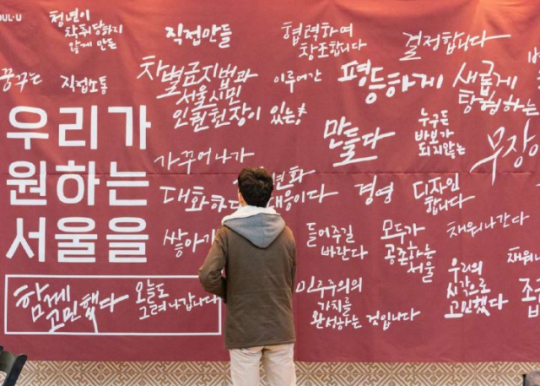 OUL·U
청년이
착취당하지
않게 만든
직접만들
협력하며
창조합니다
결정합니다
꿈꾸는
직접소통
차별금지법과
서울시민
인권헌장이 있는
이루어간
평등하게
새롭게
탐험하는
우리가
원하는
서울을
가꾸어나가
만들다
누구든
바보가
되지않는
무장
변화
대응이다
경영
디자인
합니다
쌓아
들어주길
바란다
모두가
공존하는
서울
채워나간다
채워
함께
고민했다
오늘도
그려나갑니다
민주주의의
가치를
완성하는 것입니다
우리의
시각으로
고민했다